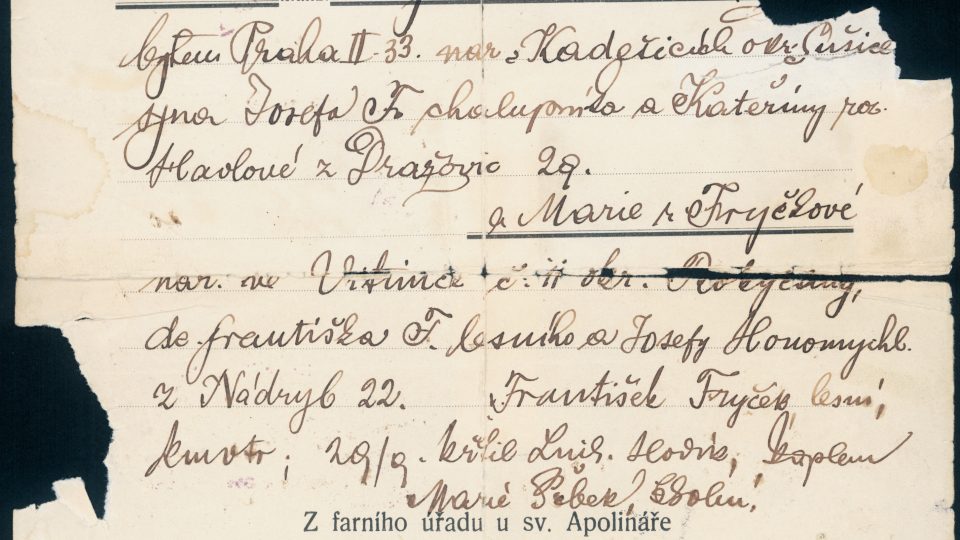 bytem Praha II 33. nar. v Kadešicích okr. Sušice
syna Josefa F. chalupníka a Kateřiny roz.
Havlové z Dražovic 29.
a Marie r. Fryčkové
nar. ve Vitince č. 11 okr. Rokycany,
dc. Františka F. lesního a Josefy Honomychl.
z Nádryb 22. František Fryček, lesní,
kmotr; 29/9. křtil Ludv. kaplan
Marie
Z farního úřadu u sv. Apolináře